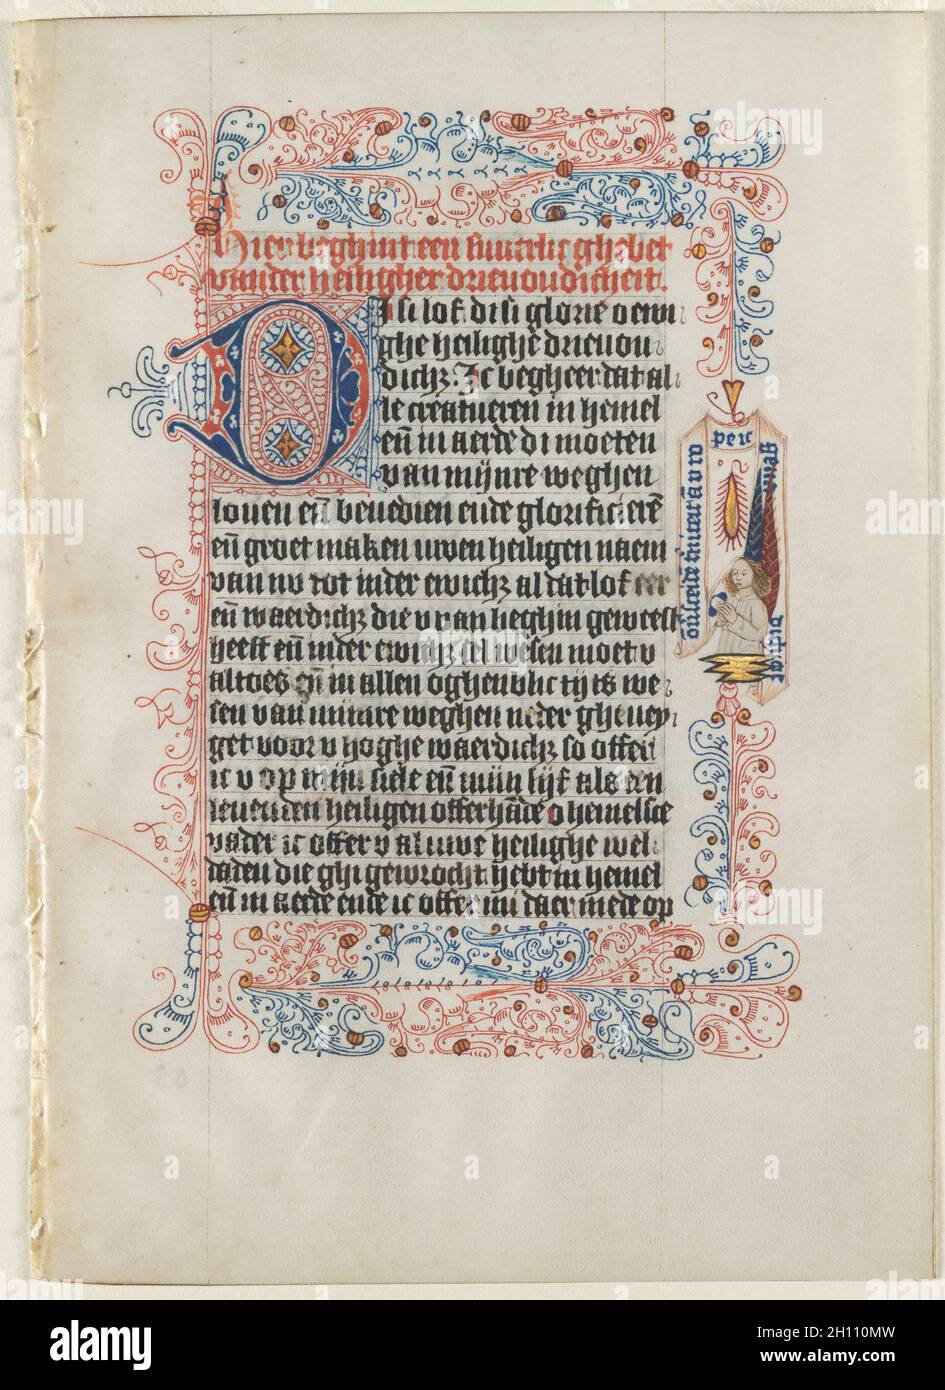 Hier beghint een suuerlic ghebet
vander heiligher drieuoudicheit.
Di si lof. di si glorie o ewi
ghe heilighe drieuou
dichz. Ic begheer dat al
le creatueren in hemel
en̄ in aerde di moeten
van mijnre weghen
louen en̄ benedien ende glorificierē
en̄ groet maken uwen heiligen naem
van nv tot inder ewichz al dat lof eer
en̄ waerdichz die v van beghin geweest
heeft en̄ inder ewichz sel wesen moet v
altoes en̄ in allen oghenblic tijts we
sen van mijnre weghen
get voor v hoghe waerdichz so offer
ic v op mijn siele en̄ mijn lijf als een
leuenden heiligen offerhāde o hemelsce
vader ic offer v al uwe heilighe wel
daden die ghi gewrocht hebt in hemel
en̄ in aerde ende ic offer mi daer mede op
alamy
alamy
Image ID: 2H110MW
www.alamy.com